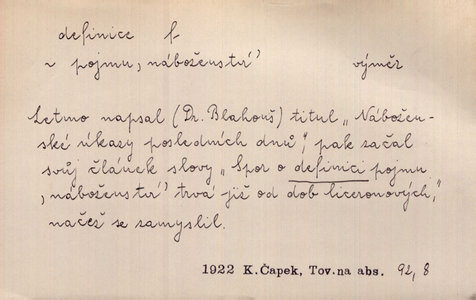 definice f
~ pojmu „náboženství” výměr
Letmo napsal (Dr. Blahouš) titul „Nábožen-
ské úkazy posledních dnů”, pak začal
svůj článek slovy „Spor o definici pojmu
‚náboženství’ trvá již od dob Ciceronových,”
načež se zamyslil.
1922 K.Čapek, Tov.na abs. 92, 8